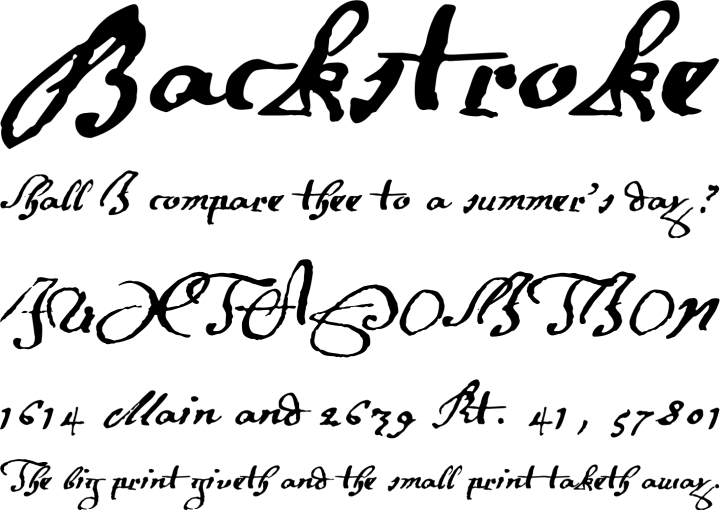 Backstroke
Shall I compare thee to a summer's day?
JUXTAPOSITION
1614 Main and 2639 Rt. 41, 57801
The big print giveth and the small print taketh away.